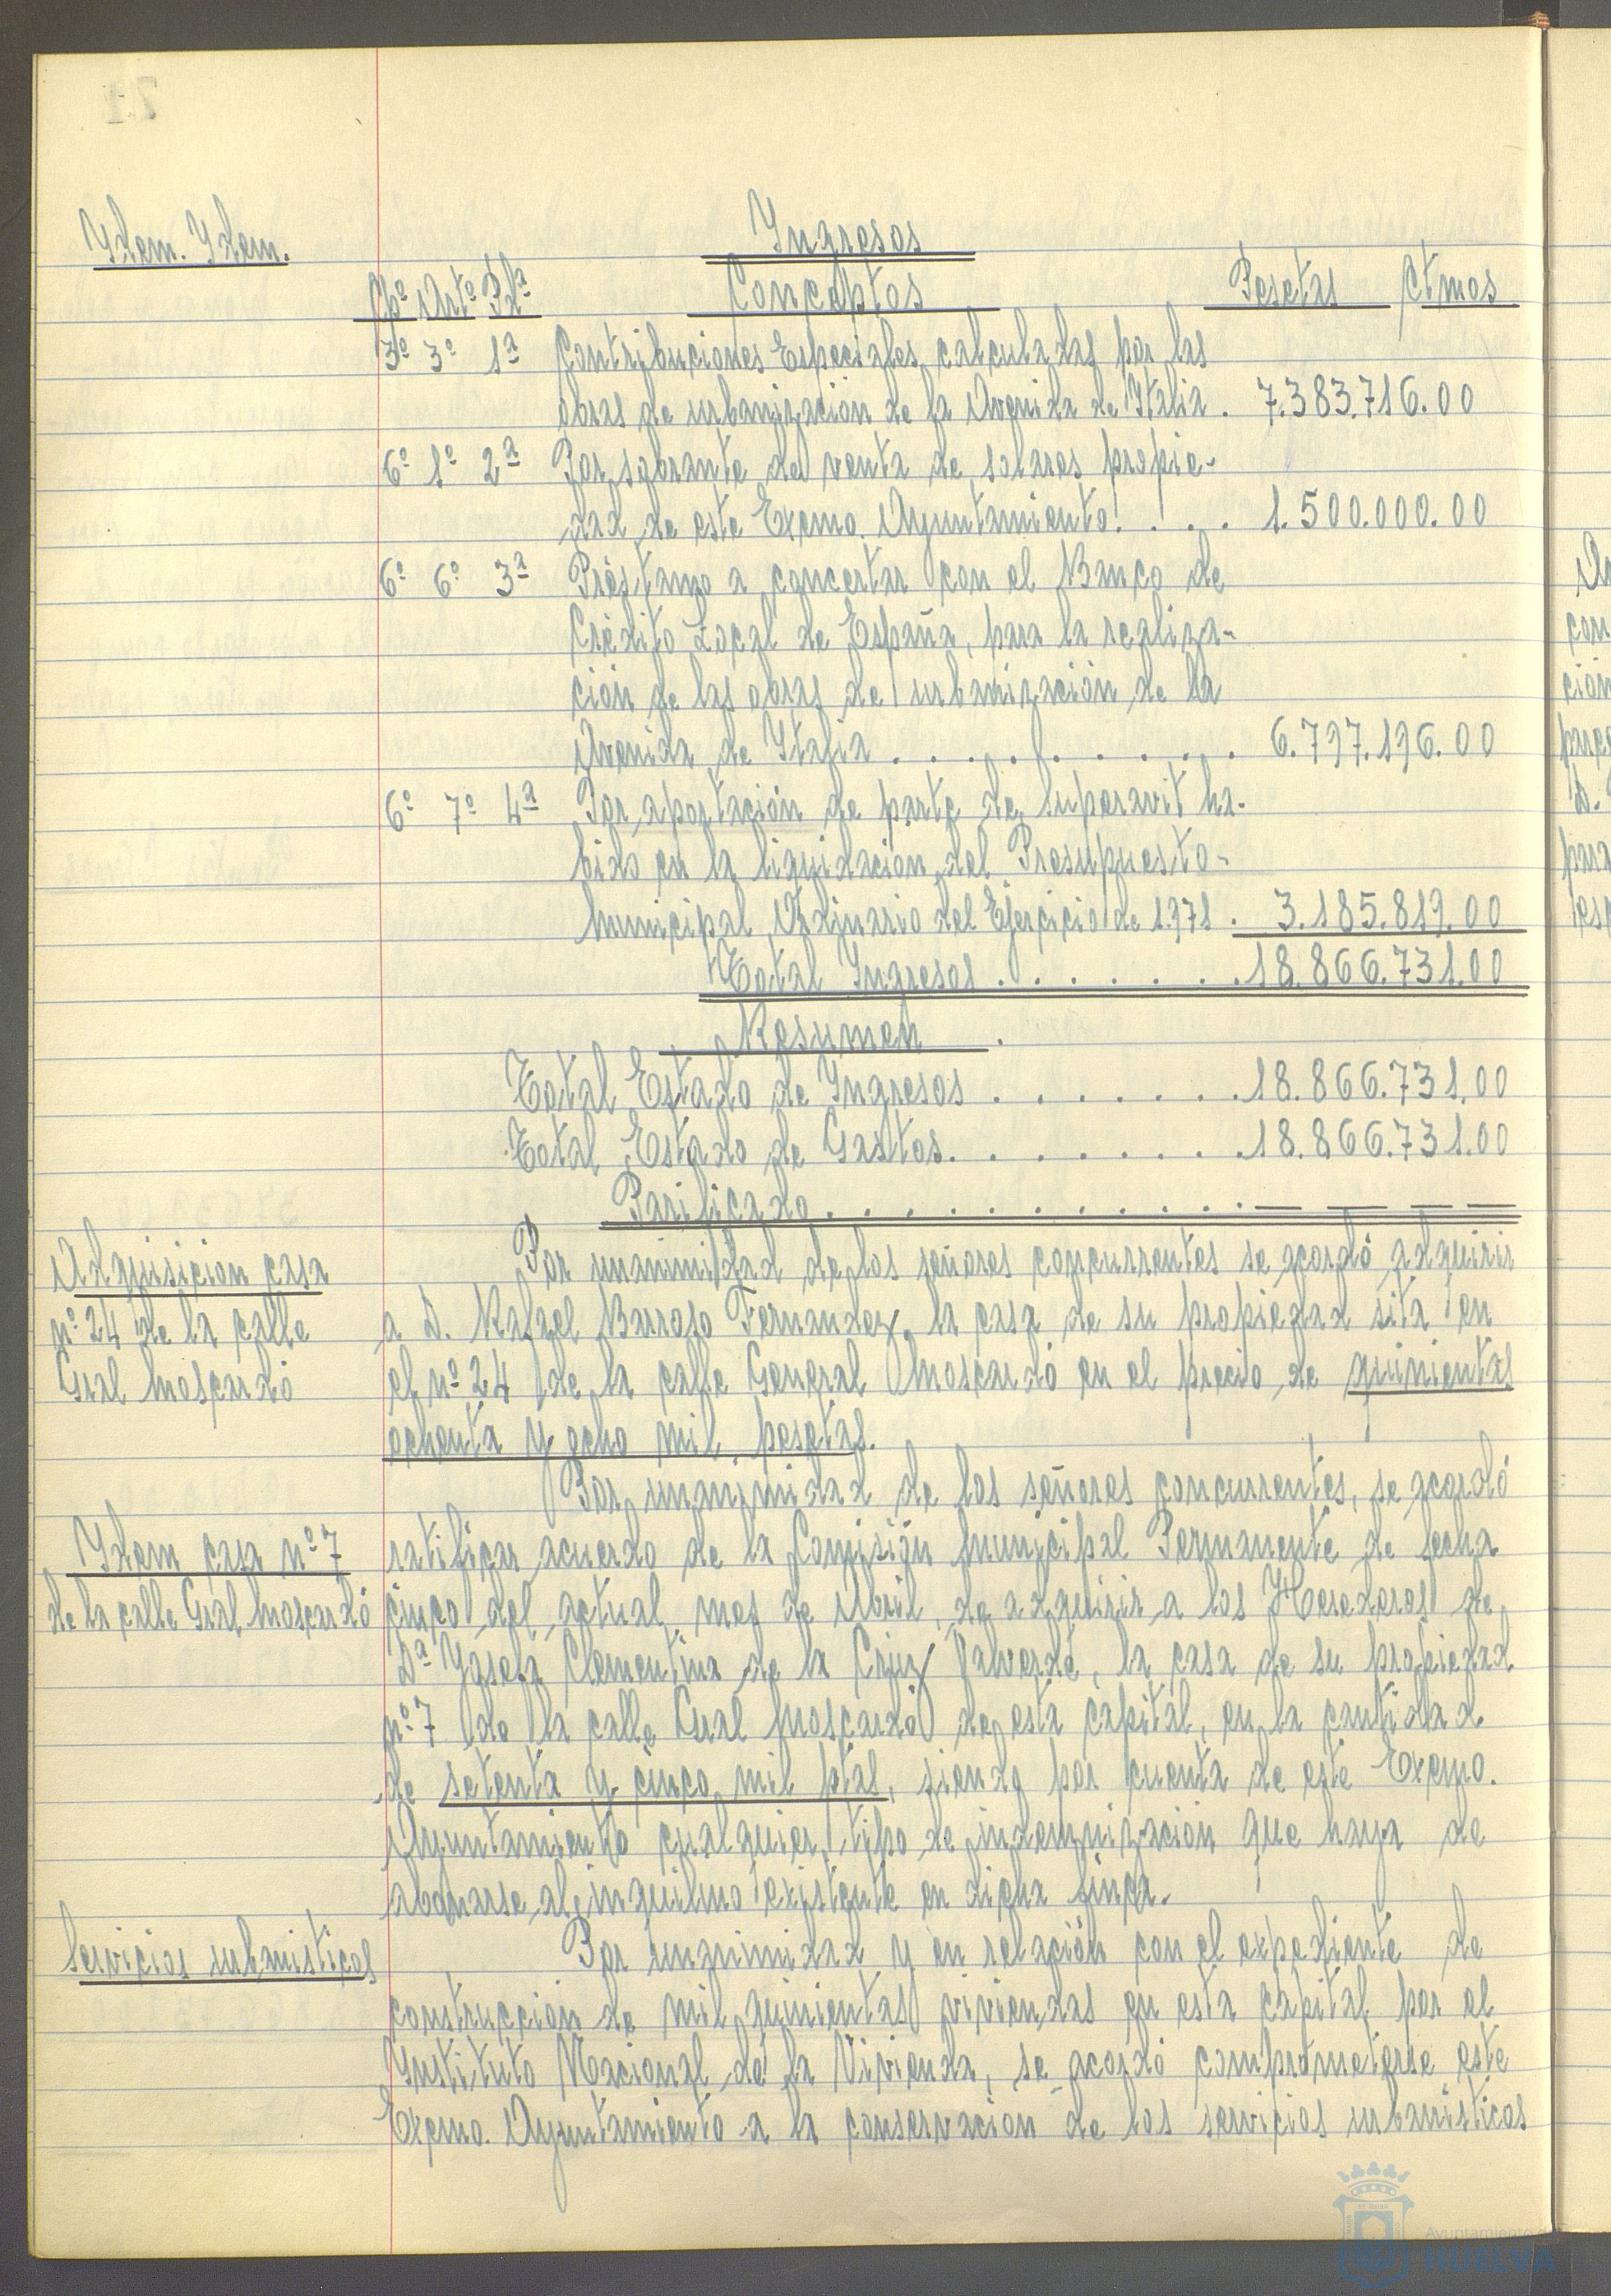 Ydem. Ydem.
Ingresos
Cpº Artº Pdª Conceptos Pesetas Ctmos
3º 3º 1ª Contribuciones Especiales calculadas por las
obras de urbanización de la Avenida de Italia . 7.383.716.00
6º 1º 2ª Por sobrante de venta de solares propie-
dad de este Excmo. Ayuntamiento. . . . 1.500.000.00
6º 6º 3ª Préstamo a concertar con el Banco de
Crédito Local de España, para la realiza-
ción de las obras de urbanización de la
Avenida de Italia . . . . . . . . . . 6.797.196.00
6º 7º 4ª Por aportación de parte de superavit ha-
bido en la liquidación del Presupuesto-
Municipal Ordinario del Ejercicio de 1.971 . 3.185.819.00
Total Ingresos . . . . . . . 18.866.731.00
Resumen .
Total Estado de Ingresos . . . . . . . 18.866.731.00
Total Estado de Gastos. . . . . . . . 18.866.731.00
Parificado . . . . . . . . . . . . — — — —
Adquisicion casa
nº 24 de la calle
Gral Moscardó
Por unanimidad de los señores concurrentes se acordó adquirir
a D. Rafael Barroso Fernandez, la casa de su propiedad sita en
el nº 24 de la calle General Moscardó en el precio de quinientas
ochenta y ocho mil pesetas.
Por unanimidad de los señores concurrentes, se acordó
Ydem casa nº 7
de la calle Gral Moscardó
ratificar acuerdo de la Comisión Municipal Permanente de fecha
cinco del actual mes de Abril, de adquirir a los Herederos de
Dª Yosefa Clementina de la Cruz Valverde, la casa de su propiedad
nº 7 de la calle Gral Moscardó de esta capital, en la cantidad
de setenta y cinco mil ptas, siendo por cuenta de este Excmo.
Ayuntamiento cualquier tipo de indemnización que haya de
abonarse al inquilino existente en dicha finca.
Servicios urbanisticos
Por unanimidad y en relación con el expediente de
construccion de mil quinientas viviendas en esta capital por el
Ynstituto Nacional de la Vivienda, se acordó comprometerse este
Excmo. Ayuntamiento a la conservacion de los servicios urbanísticos
Ayuntamiento
HUELVA